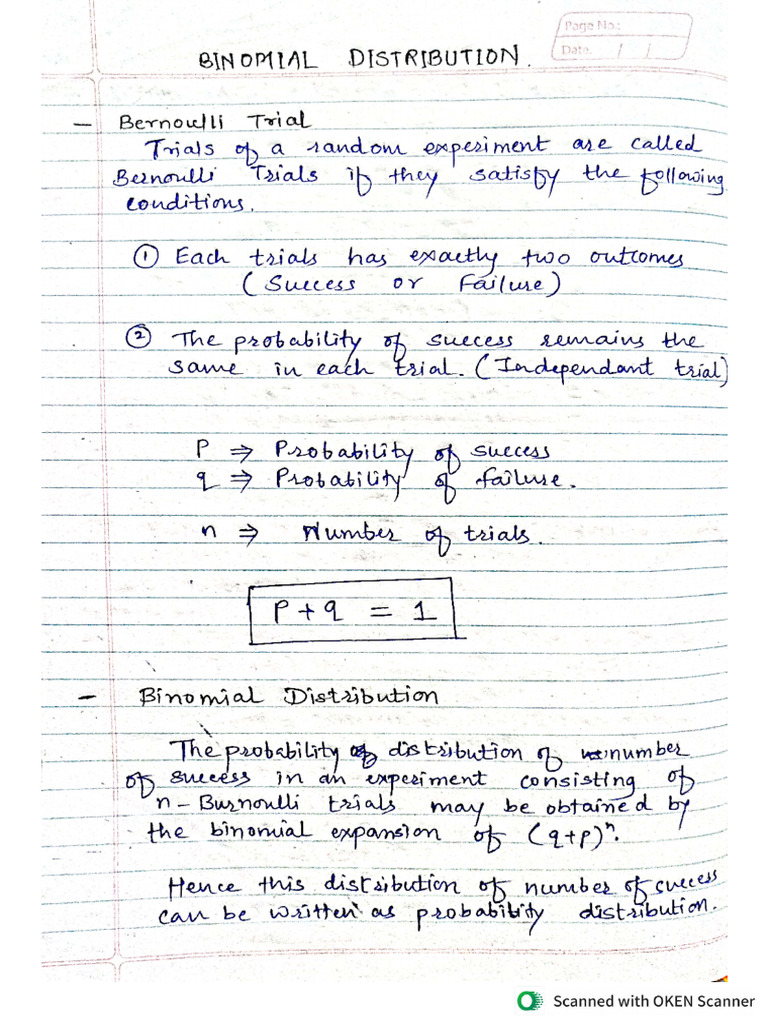 Page No.:
Date. / /
BINOMIAL DISTRIBUTION.
- Bernoulli Trial
Trials of a random experiment are called
Bernoulli Trials if they satisfy the following
conditions.
① Each trials has exactly two outcomes
(Success or Failure)
② The probability of success remains the
same in each trial. (Independant trial)
P ⇒ Probability of success
q ⇒ Probability of failure.
n ⇒ Number of trials.
P + q = 1
- Binomial Distribution
The probability of distribution of number
of success in an experiment consisting of
n - Burnoulli trials may be obtained by
the binomial expansion of (q+p)ⁿ.
Hence this distribution of number of success
can be written as probability distribution.
Scanned with OKEN Scanner